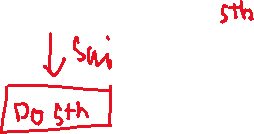 sth
Sai
Do sth